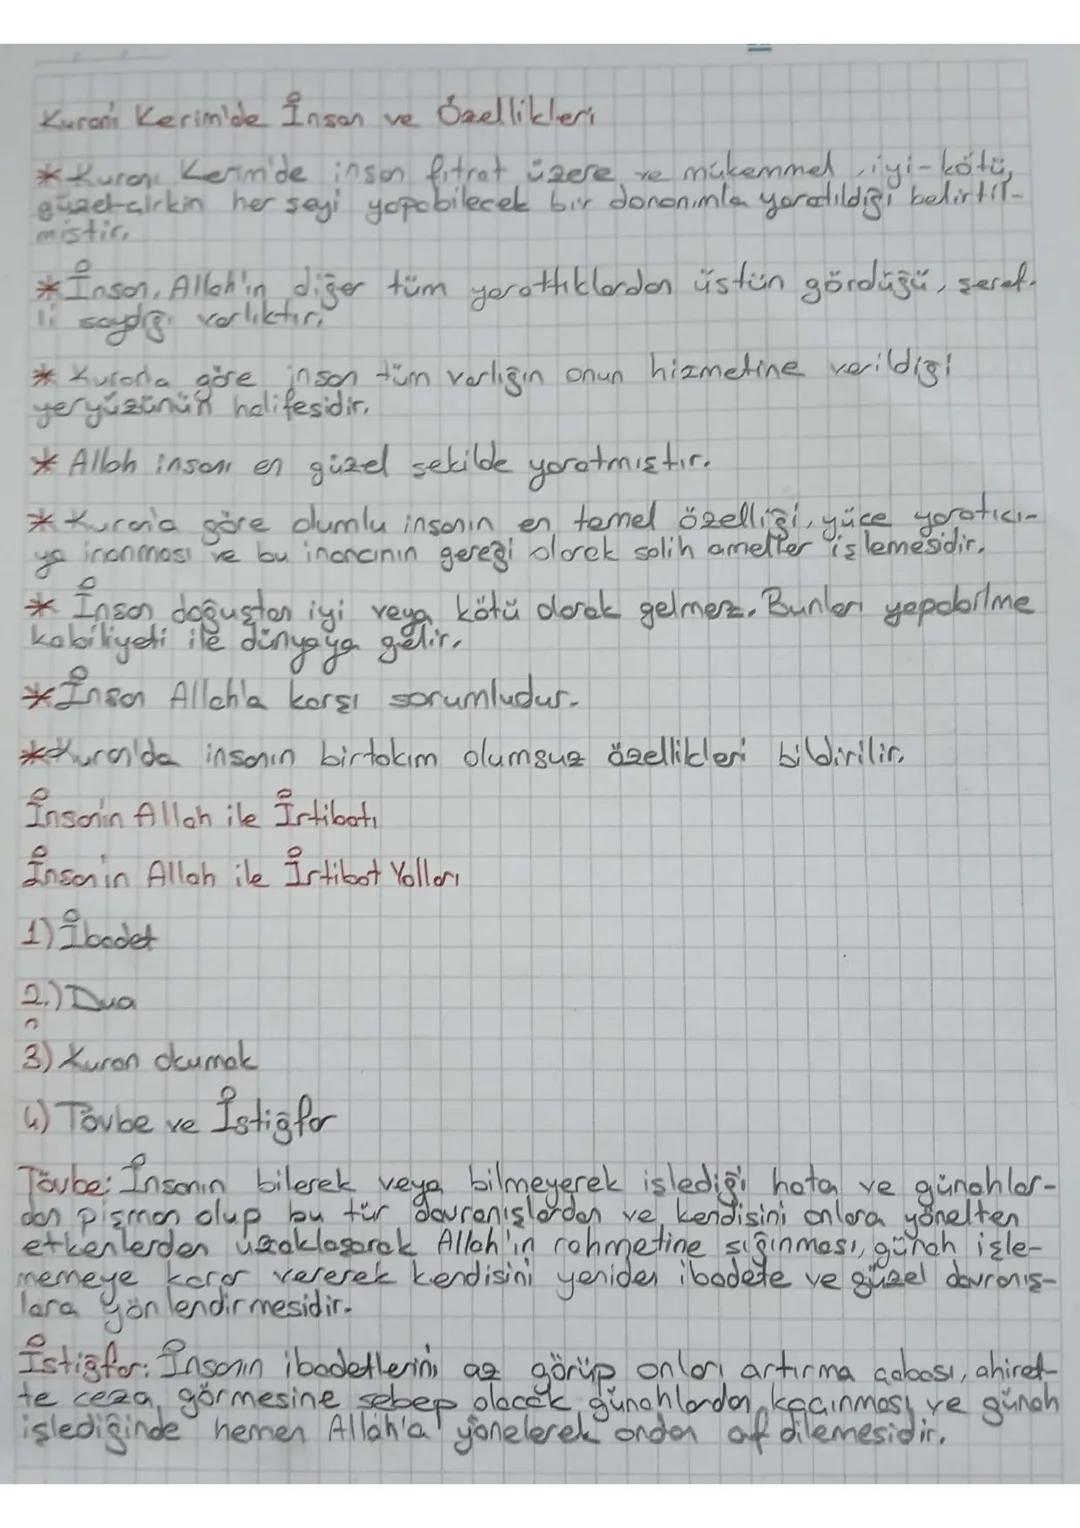 Kuranı Kerim'de İnsan ve Özellikleri
* Kuranı Kerim'de insan fıtrat üzere ve mükemmel, iyi-kötü,
güzel-çirkin her seyi yapabilecek bir donanımla yaratıldığı belirtil-
mistir.
* İnsan, Allah'ın diğer tüm yarattıklardan üstün gördüğü, seref-
li saydığı varlıktır.
* Kuran'a göre insan tüm varlığın onun hizmetine verildiği
yeryüzünün halifesidir.
* Allah insanı en güzel sekilde yaratmıştır.
* Kuran'a göre olumlu insanın en temel özelliği, yüce yaratıcı-
ya inanması ve bu inancının gereği olarak salih ameller işlemesidir.
* İnsan doğuştan iyi veya kötü olarak gelmez. Bunları yapabilme
kabiliyeti ile dünyaya gelir.
* İnsan Allah'a karşı sorumludur.
* Kuran'da insanın birtakım olumsuz özellikleri bildirilir.
İnsanın Allah ile İrtibatı
İnsanın Allah ile İrtibat Yolları
1) İbadet
2.) Dua
3) Kuran okumak
4) Tövbe ve İstiğfar
Tövbe: İnsanın bilerek veya bilmeyerek işlediği hata ve günahlar-
dan pişman olup bu tür davranışlardan ve kendisini onlara yönelten
etkenlerden uzaklaşarak Allah'ın rahmetine sığınması, günah işle-
memeye karar vererek kendisini yeniden ibadete ve güzel davranış-
lara yönlendirmesidir.
İstiğfar: İnsanın ibadetlerini az görüp onları artırma çabası, ahiret-
te ceza görmesine sebep olacak günahlardan kaçınması ve günah
işlediğinde hemen Allah'a yönelerek ondan af dilemesidir.